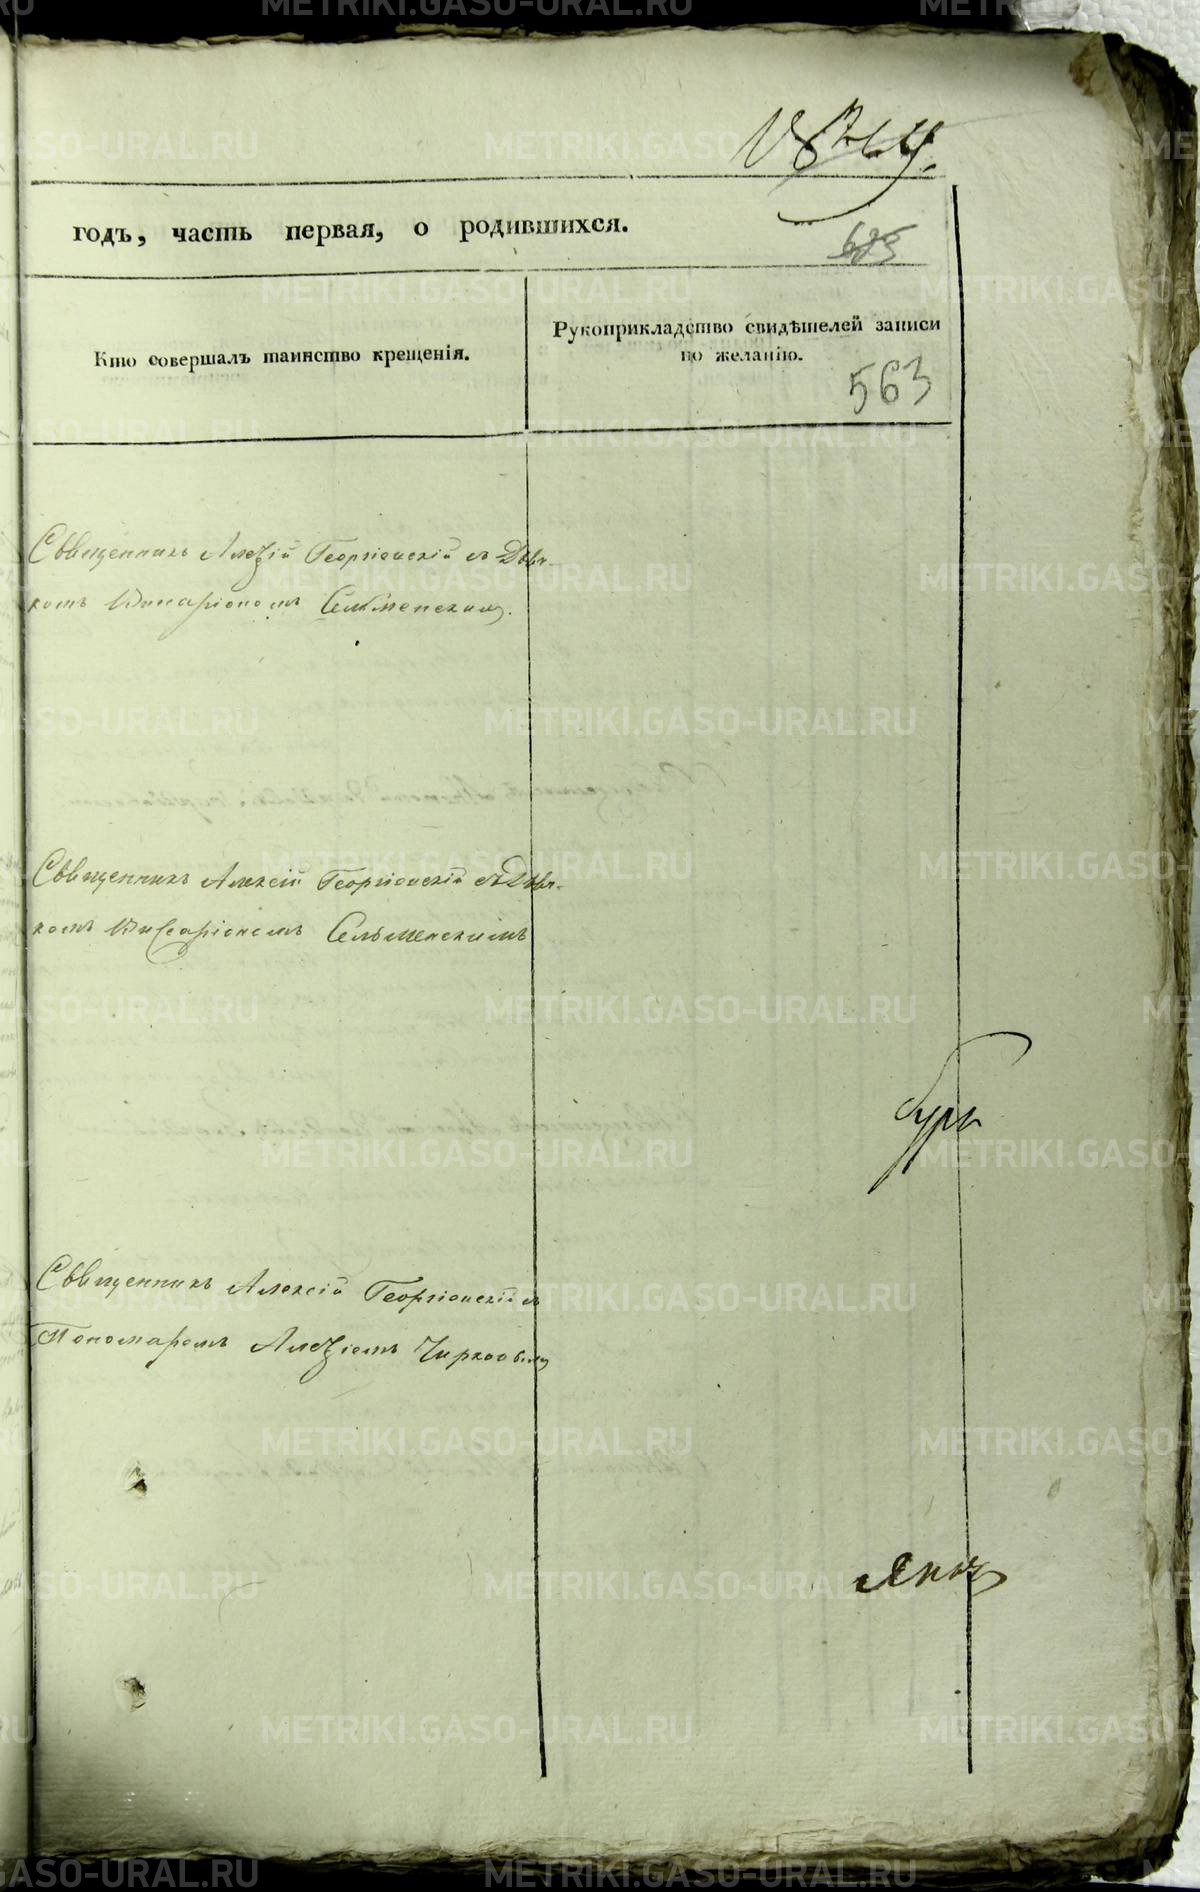 годъ, часть первая, о родившихся.
685
Кто совершалъ таинство крещенія.
Рукоприкладство свидѣтелей записи
по желанію.
563
Священникъ Алексій Георгіевскій съ Дьяч-
комъ Виссаріономъ Сельменскимъ.
Священникъ Алексій Георгіевскій съ Дьяч-
комъ Виссаріономъ Сельменскимъ
Священникъ Алексій Георгіевскій съ
Пономаремъ Алексіемъ Чирковымъ
METRIKI.GASO-URAL.RU